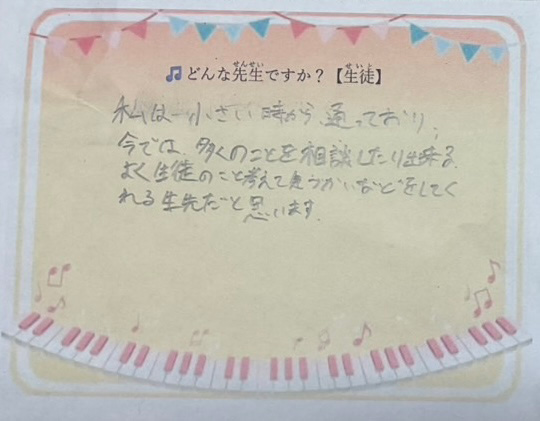 🎵どんな先生ですか？【生徒】
私は小さい時から通っており、
今では、多くのことを相談したり出来る。
よく生徒のこと考えて気づかいなどをしてく
れる生先だと思います。